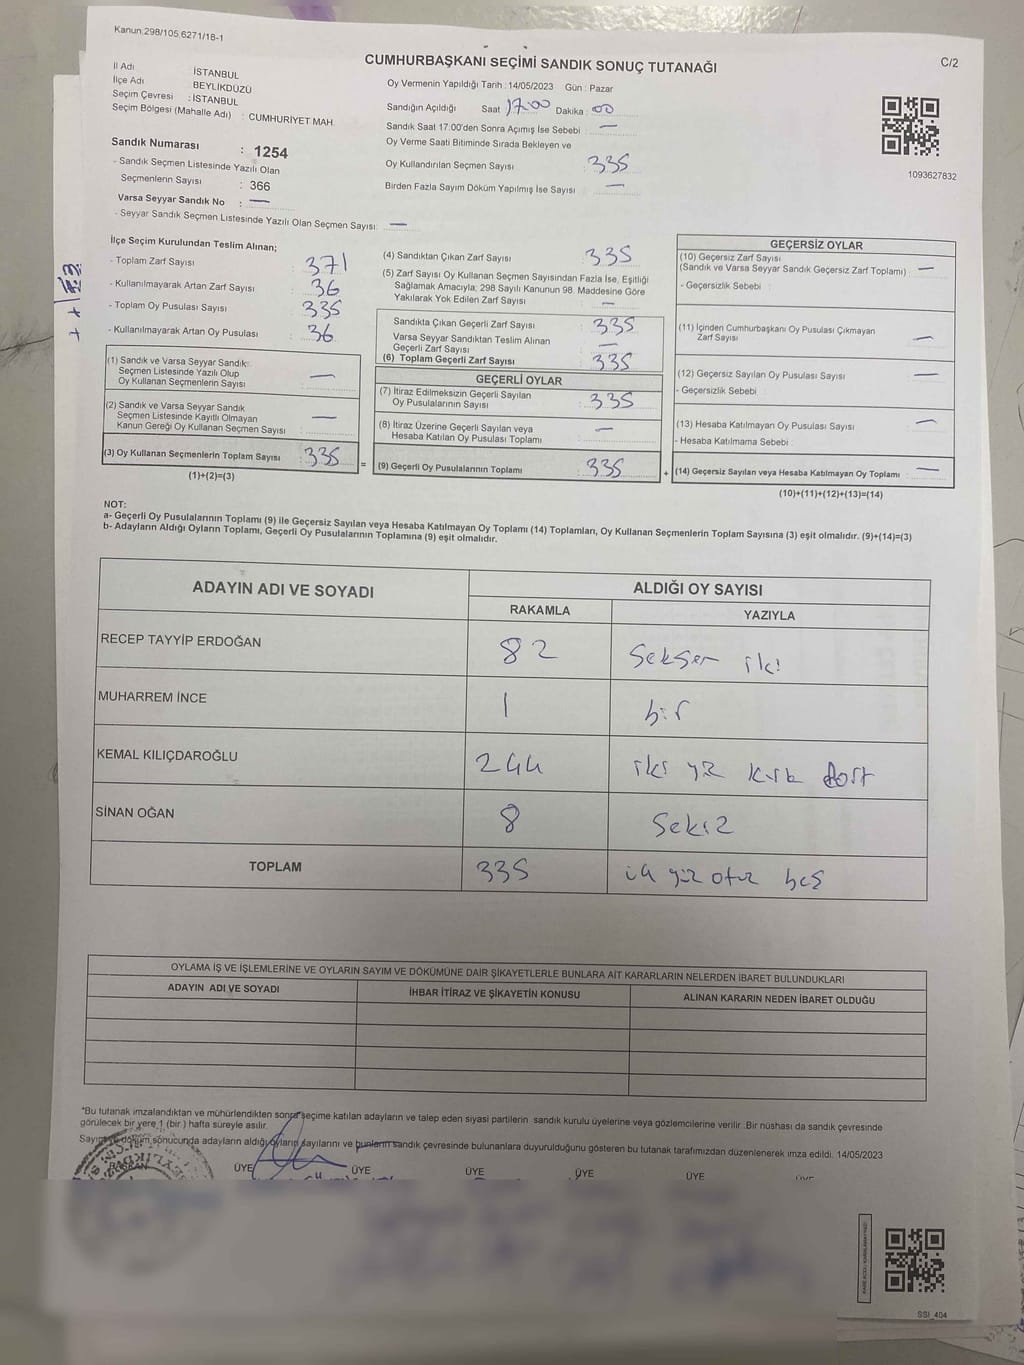 Kanun 298/105,6271/18-1
CUMHURBAŞKANI SEÇİMİ SANDIK SONUÇ TUTANAĞI
C/2
İl Adı : İSTANBUL
İlçe Adı : BEYLİKDÜZÜ
Seçim Çevresi : İSTANBUL
Seçim Bölgesi (Mahalle Adı) : CUMHURİYET MAH.
Sandık Numarası : 1254
- Sandık Seçmen Listesinde Yazılı Olan
Seçmenlerin Sayısı : 366
Varsa Seyyar Sandık No : —
- Seyyar Sandık Seçmen Listesinde Yazılı Olan Seçmen Sayısı: —
Oy Vermenin Yapıldığı Tarih : 14/05/2023 Gün : Pazar
Sandığın Açıldığı Saat 17:00 Dakika : 00
Sandık Saat 17:00'den Sonra Açımış İse Sebebi : —
Oy Verme Saati Bitiminde Sırada Bekleyen ve
Oy Kullandırılan Seçmen Sayısı : 335
Birden Fazla Sayım Döküm Yapılmış İse Sayısı : —
1093627832
İlçe Seçim Kurulundan Teslim Alınan;
- Toplam Zarf Sayısı : 371
- Kullanılmayarak Artan Zarf Sayısı : 36
- Toplam Oy Pusulası Sayısı : 335
- Kullanılmayarak Artan Oy Pusulası : 36
(1) Sandık ve Varsa Seyyar Sandık
Seçmen Listesinde Yazılı Olup
Oy Kullanan Seçmenlerin Sayısı : —
(2) Sandık ve Varsa Seyyar Sandık
Seçmen Listesinde Kayıtlı Olmayan
Kanun Gereği Oy Kullanan Seçmen Sayısı : —
(3) Oy Kullanan Seçmenlerin Toplam Sayısı : 335
(1)+(2)=(3)
=
(4) Sandıktan Çıkan Zarf Sayısı : 335
(5) Zarf Sayısı Oy Kullanan Seçmen Sayısından Fazla İse, Eşitliği
Sağlamak Amacıyla; 298 Sayılı Kanunun 98. Maddesine Göre
Yakılarak Yok Edilen Zarf Sayısı : —
Sandıkta Çıkan Geçerli Zarf Sayısı : 335
Varsa Seyyar Sandıktan Teslim Alınan
Geçerli Zarf Sayısı : —
(6) Toplam Geçerli Zarf Sayısı : 335
GEÇERLİ OYLAR
(7) İtiraz Edilmeksizin Geçerli Sayılan
Oy Pusulalarının Sayısı : 335
(8) İtiraz Üzerine Geçerli Sayılan veya
Hesaba Katılan Oy Pusulası Toplamı : —
(9) Geçerli Oy Pusulalarının Toplamı : 335
+
GEÇERSİZ OYLAR
(10) Geçersiz Zarf Sayısı
(Sandık ve Varsa Seyyar Sandık Geçersiz Zarf Toplamı) : —
- Geçersizlik Sebebi :
(11) İçinden Cumhurbaşkanı Oy Pusulası Çıkmayan
Zarf Sayısı : —
(12) Geçersiz Sayılan Oy Pusulası Sayısı : —
- Geçersizlik Sebebi :
(13) Hesaba Katılmayan Oy Pusulası Sayısı : —
- Hesaba Katılmama Sebebi :
(14) Geçersiz Sayılan veya Hesaba Katılmayan Oy Toplamı : —
(10)+(11)+(12)+(13)=(14)
NOT:
a- Geçerli Oy Pusulalarının Toplamı (9) ile Geçersiz Sayılan veya Hesaba Katılmayan Oy Toplamı (14) Toplamları, Oy Kullanan Seçmenlerin Toplam Sayısına (3) eşit olmalıdır. (9)+(14)=(3)
b- Adayların Aldığı Oyların Toplamı, Geçerli Oy Pusulalarının Toplamına (9) eşit olmalıdır.
ADAYIN ADI VE SOYADI
ALDIĞI OY SAYISI
RAKAMLA YAZIYLA
RECEP TAYYİP ERDOĞAN 82 Seksen iki
MUHARREM İNCE 1 bir
KEMAL KILIÇDAROĞLU 244 iki yüz kırk dört
SİNAN OĞAN 8 Sekiz
TOPLAM 335 üç yüz otuz beş
OYLAMA İŞ VE İŞLEMLERİNE VE OYLARIN SAYIM VE DÖKÜMÜNE DAİR ŞİKAYETLERLE BUNLARA AİT KARARLARIN NELERDEN İBARET BULUNDUKLARI
ADAYIN ADI VE SOYADI İHBAR İTİRAZ VE ŞİKAYETİN KONUSU ALINAN KARARIN NEDEN İBARET OLDUĞU
*Bu tutanak imzalandıktan ve mühürlendikten sonra seçime katılan adayların ve talep eden siyasi partilerin sandık kurulu üyelerine veya gözlemcilerine verilir. Bir nüshası da sandık çevresinde
görülecek bir yere 1 (bir ) hafta süreyle asılır.
Sayım ve döküm sonucunda adayların aldığı oyların sayılarını ve bunların sandık çevresinde bulunanlara duyurulduğunu gösteren bu tutanak tarafımızdan düzenlenerek imza edildi. 14/05/2023
BAŞKAN ÜYE ÜYE ÜYE ÜYE ÜYE ÜYE
SSI_404